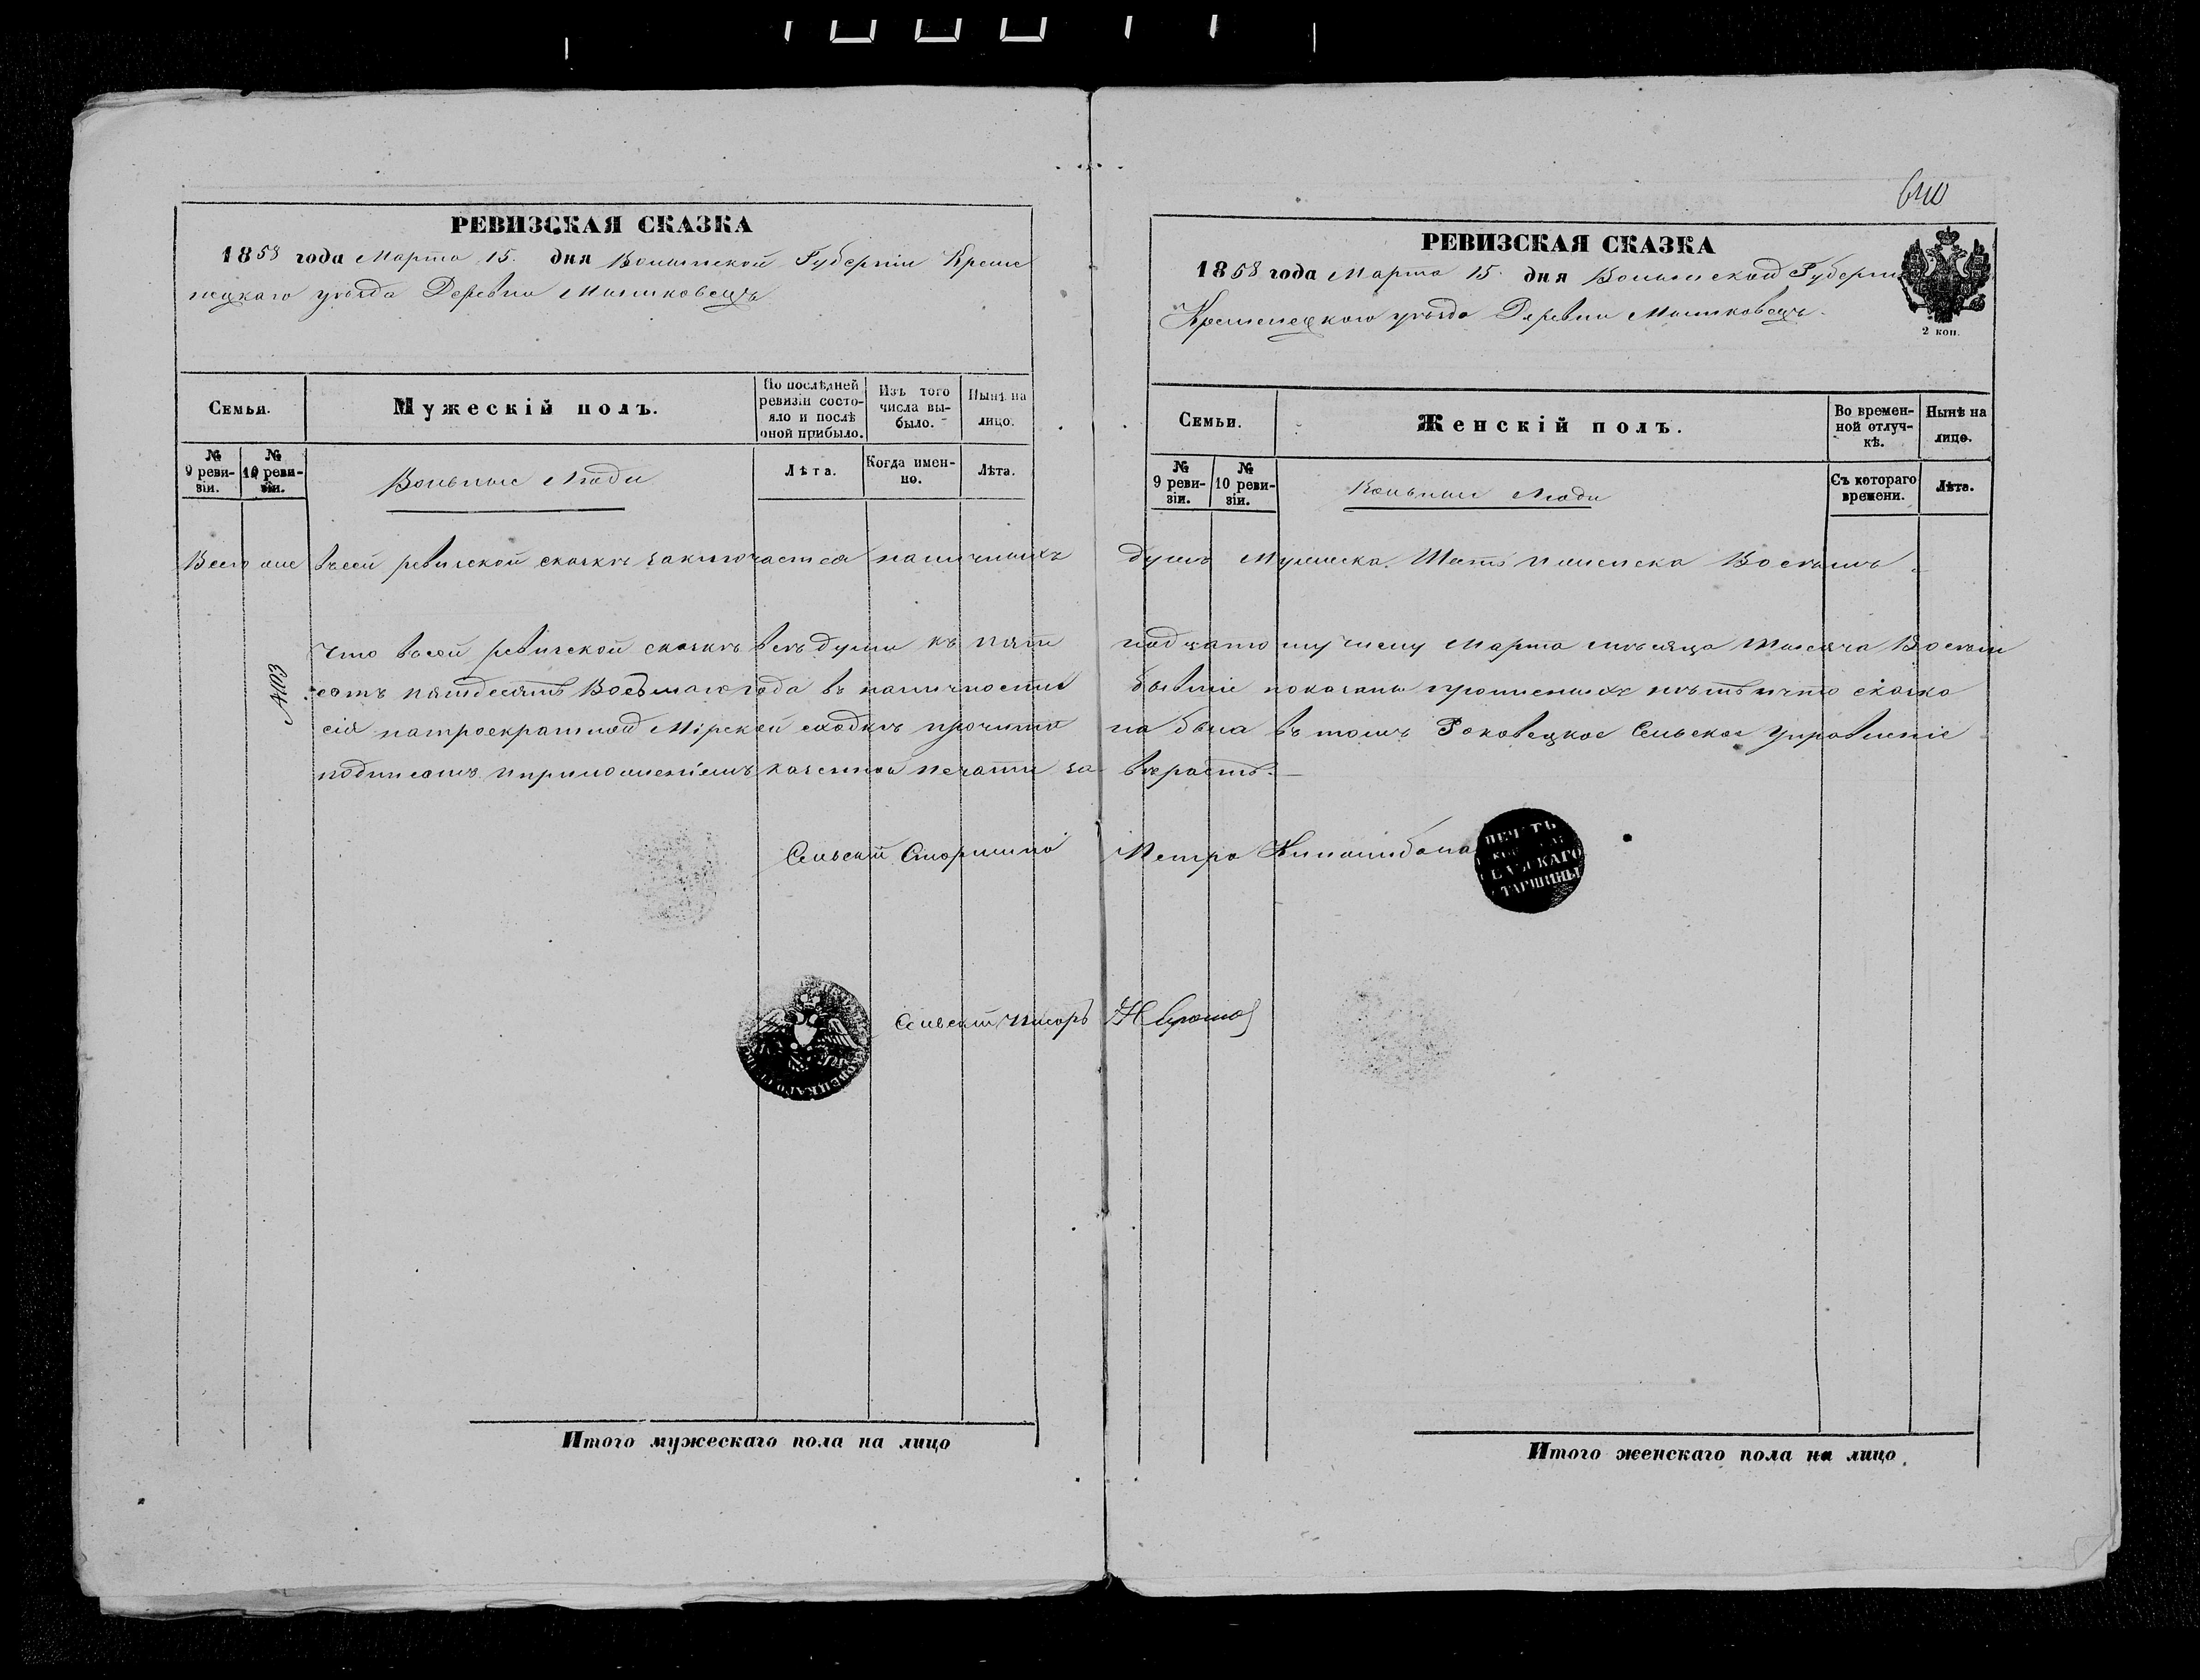 640
РЕВИЗСКАЯ СКАЗКА
1858 года Марта 15. дня Волынской Губернiи Креме
нецкаго уѣзда Деревни
Семьи.
Мужескiй полъ.
По послѣдней ревизiи состо-
яло и послѣ оной прибыло.
Изъ того числа вы-
было.
Нынѣ на лицо.
№ 9 реви-
зiи.
№ 10 реви-
зiи.
Вольные Люди
Лѣта.
Когда имен-
но.
Лѣта.
Всего въ сей ревиской сказкѣ заключается наличныхъ
Что въ сей ревиской сказкѣ всѣ души къ пяти
сотъ пятдесятъ Восьмаго года въ наличности
сiя на троекратной Мiрской сходкѣ прочита
подписомъ и приложенiемъ казенной печати за-
Сельскiй Старшина
Сельскiй Писарь
Итого мужескаго пола на лицо
РЕВИЗСКАЯ СКАЗКА
1858 года Марта 15. дня Волынской Губернiи
Кременецкого уѣзда Деревни
2 коп.
Семьи.
Женскiй полъ.
Во времен-
ной отлуч-
кѣ.
Нынѣ на лицо.
№ 9 реви-
зiи.
№ 10 реви-
зiи.
Вольные Люди
Съ котораго времени.
Лѣта.
душъ Мужеска Шесть и женска Восемь
надцатому числу Марта мѣсяца тысяча Восемь
бывшiе показаны прописныхъ нѣтъ и что сказка
на была въ томъ Роковецкое Сельское Управленiе
вѣряетъ.
Петро
ПЕЧАТЬ
СТАРШИНЫ
Итого женскаго пола на лицо